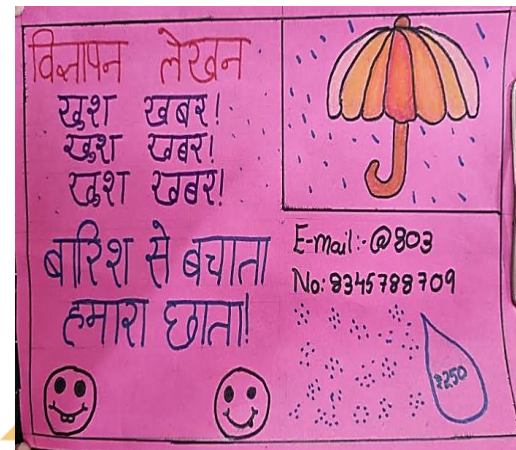 विज्ञापन लेखन
खुश खबर!
खुश खबर!
खुश खबर!
बारिश से बचाता
हमारा छाता!
E-mail:-@803
No: 9345788709
₹250